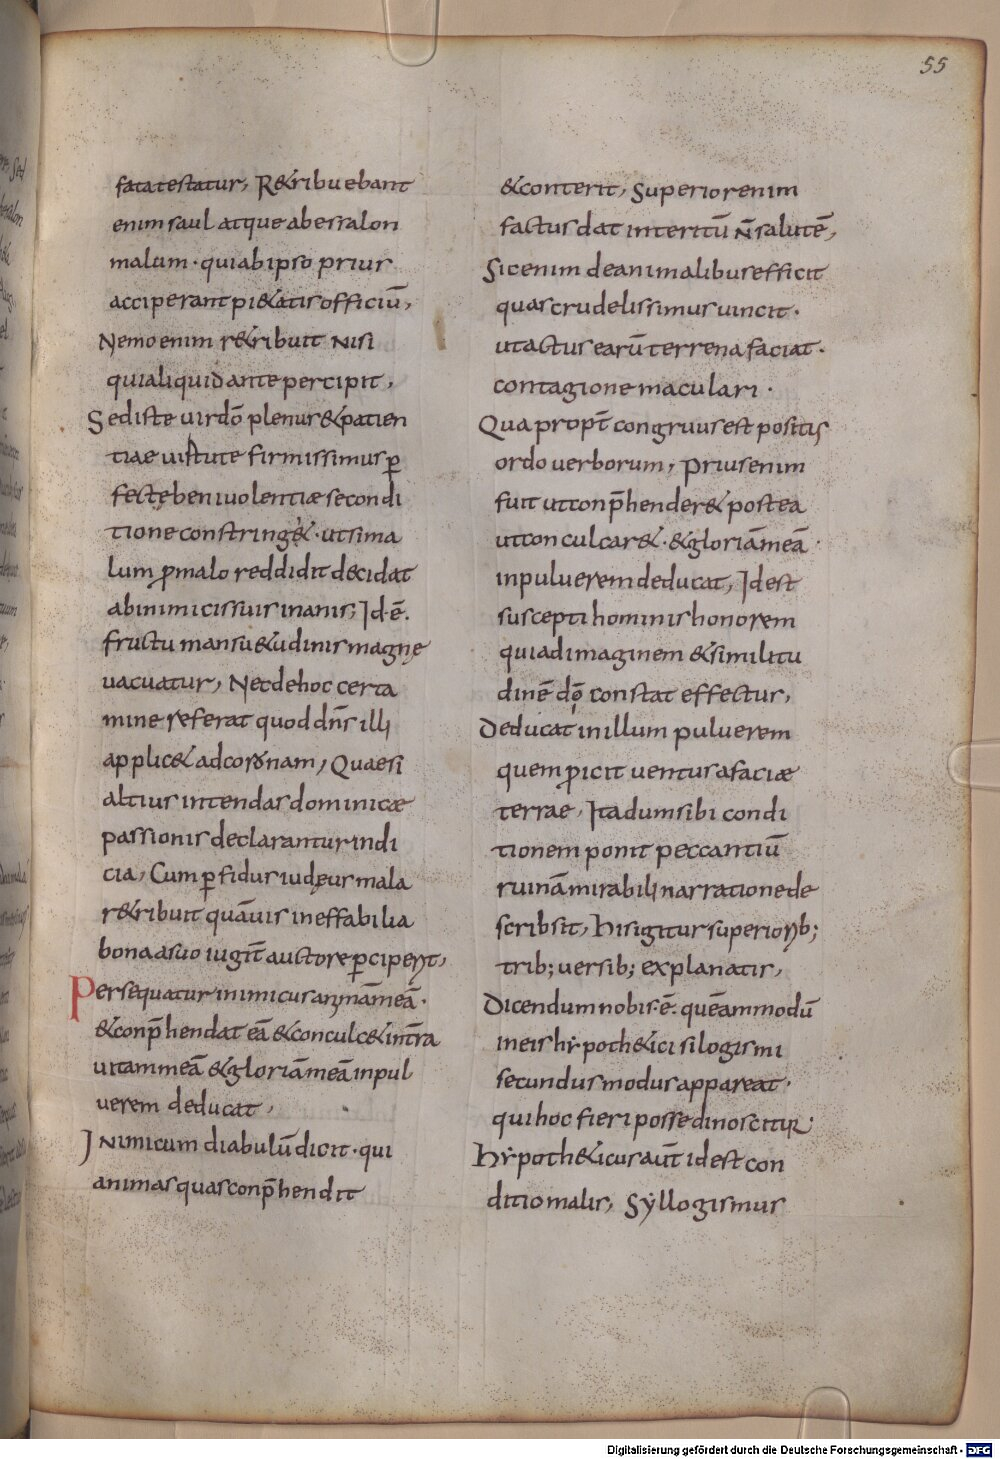 55
fatatestatur, R&ribuebant
enim saul atque abessalon
malum· quia bipso prius
acciperant pi&atis officiū,
Nemo enim r&ribuit Nisi
qui aliquid ante percipit,
Sed iste uir dō plenus & patien
tiae uirtute firmissimus ꝑ
fectę beniuolentiæ se condi
tione constring&· ut si ma
lum ꝓ malo reddidit decidat
ab inimicis suis inanis, Id·ē·
fructu mansu&udinis magnę
uacuatur, Nec de hoc certa
mine referat quod dn̄s illi
applic& ad coronam, Quae si
altius intendas dominicæ
passionis declarantur indi
cia, Cum ꝑfidus iudęus mala
r&ribuit quāuis ineffabilia
bona a suo iugit̄ auctore ꝑciper&,
Persequatur inimicus animā meā·
& conp̄hendat eā & conculc& in t̄ra
uitam meā & gloriā meā in pul
uerem deducat,
Inimicum diabulū dicit· qui
animas quas conp̄hendit
& conterit, Superior enim
factus dat interitū n̄ salutē,
Sic enim de animalibus efficit
quas crudelissimus uincit·
ut actus earū terrena faciat·
contagione maculari·
Qua propt̄ congruus est positis
ordo uerborum, Prius enim
fuit ut conp̄hender& postea
ut conculcar&· & gloriā meā·
in puluerem deducat, Id est
suscepti hominis honorem
qui ad imaginem & similitu
dinē dī constat effectus,
Deducat in illum puluerem
quem ꝓicit uentus a faciæ
terrae, Ita dum sibi condi
tionem ponit peccantiū
ruinā mirabili narratione de
scribsit, His igitur superiorib;
trib; uersib; explanatis,
Dicendum nobis·ē· quēammodū
in eis hẏpoth&ici silogismi
secundus modus appareat·
qui hoc fieri posse dinoscitur·
Hẏpoth&icus aut̄ id est con
ditiomalis, Sẏllogismus
Digitalisierung gefördert durch die Deutsche Forschungsgemeinschaft - DFG